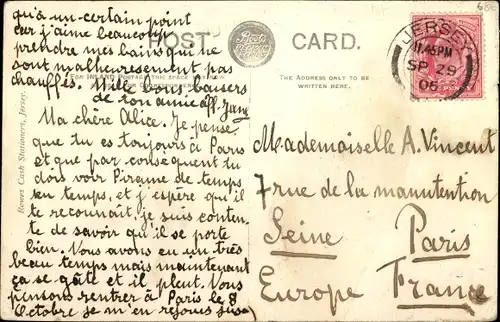 qu'à un certain point
car j'aime beaucoup
prendre mes bains qui ne
sont malheureusement pas
chauffés. Mille bons baisers
de ton amie aff.
Ma chère Alice. Je pense
que tu es toujours à Paris
et que par conséquent tu
dois voir Pirame de temps
en temps, et j'espère qu'il
te reconnait, je suis conten
te de savoir qu'il se porte
bien. Vous avons eu un très
beau temps mais maintenant
ça se gâte et il pleut. Nous
pensons rentrer à Paris le 8
Octobre je m'en réjouis
POST CARD.
FOR INLAND POSTAGE
THE ADDRESS ONLY TO BE
WRITTEN HERE.
Rowes Cash Stationers, Jersey.
JERSEY
11.45PM
SP 29
06
Mademoiselle A. Vincent
7 rue de la manutention
Seine Paris
Europe France